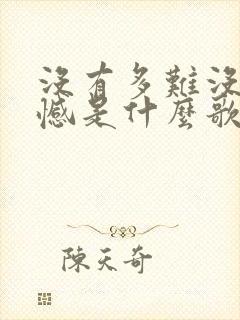 沒有多難沒
憾是什麼歌
陳天奇